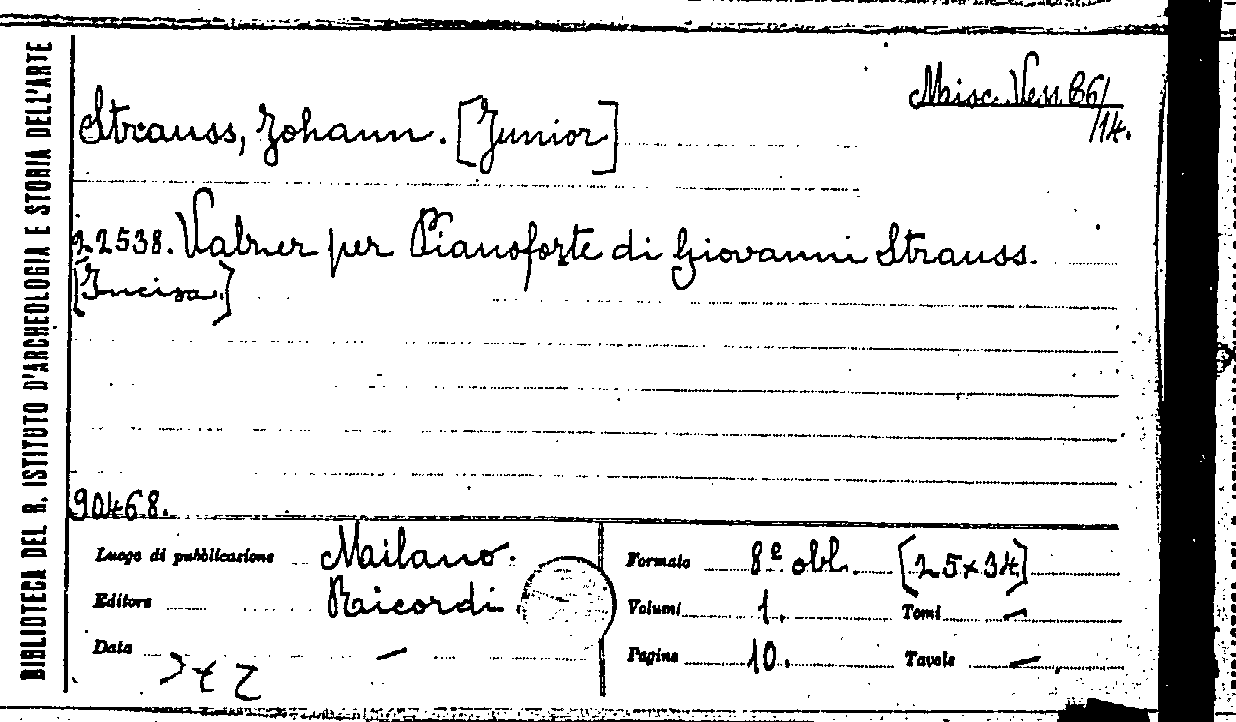 BIBLIOTECA DEL R. ISTITUTO D'ARCHEOLOGIA E STORIA DELL'ARTE
Misc. Vess. 86/
/14.
Strauss, Johann. [Junior]
22538. Valzer per Pianoforte di Giovanni Strauss.
[Incisa.]
90468.
Luogo di pubblicazione Milano.
Editore Ricordi
Data —
Formato 8º obl. [25×34]
Volumi 1. Tomi —
Pagine 10. Tavole —